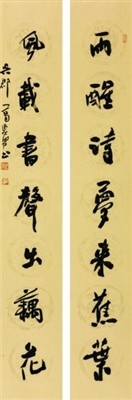 雨醒诗夢来蕉葉
風載書聲出藕花